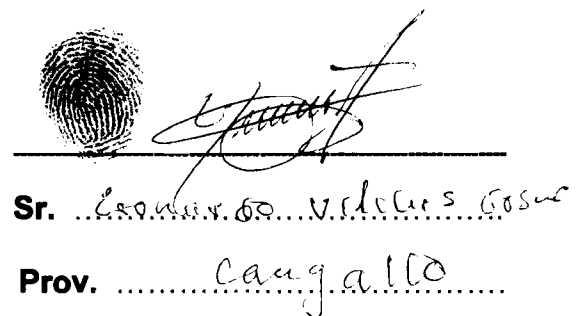 Sr. Leonardo Vilches
Prov. Cangallo